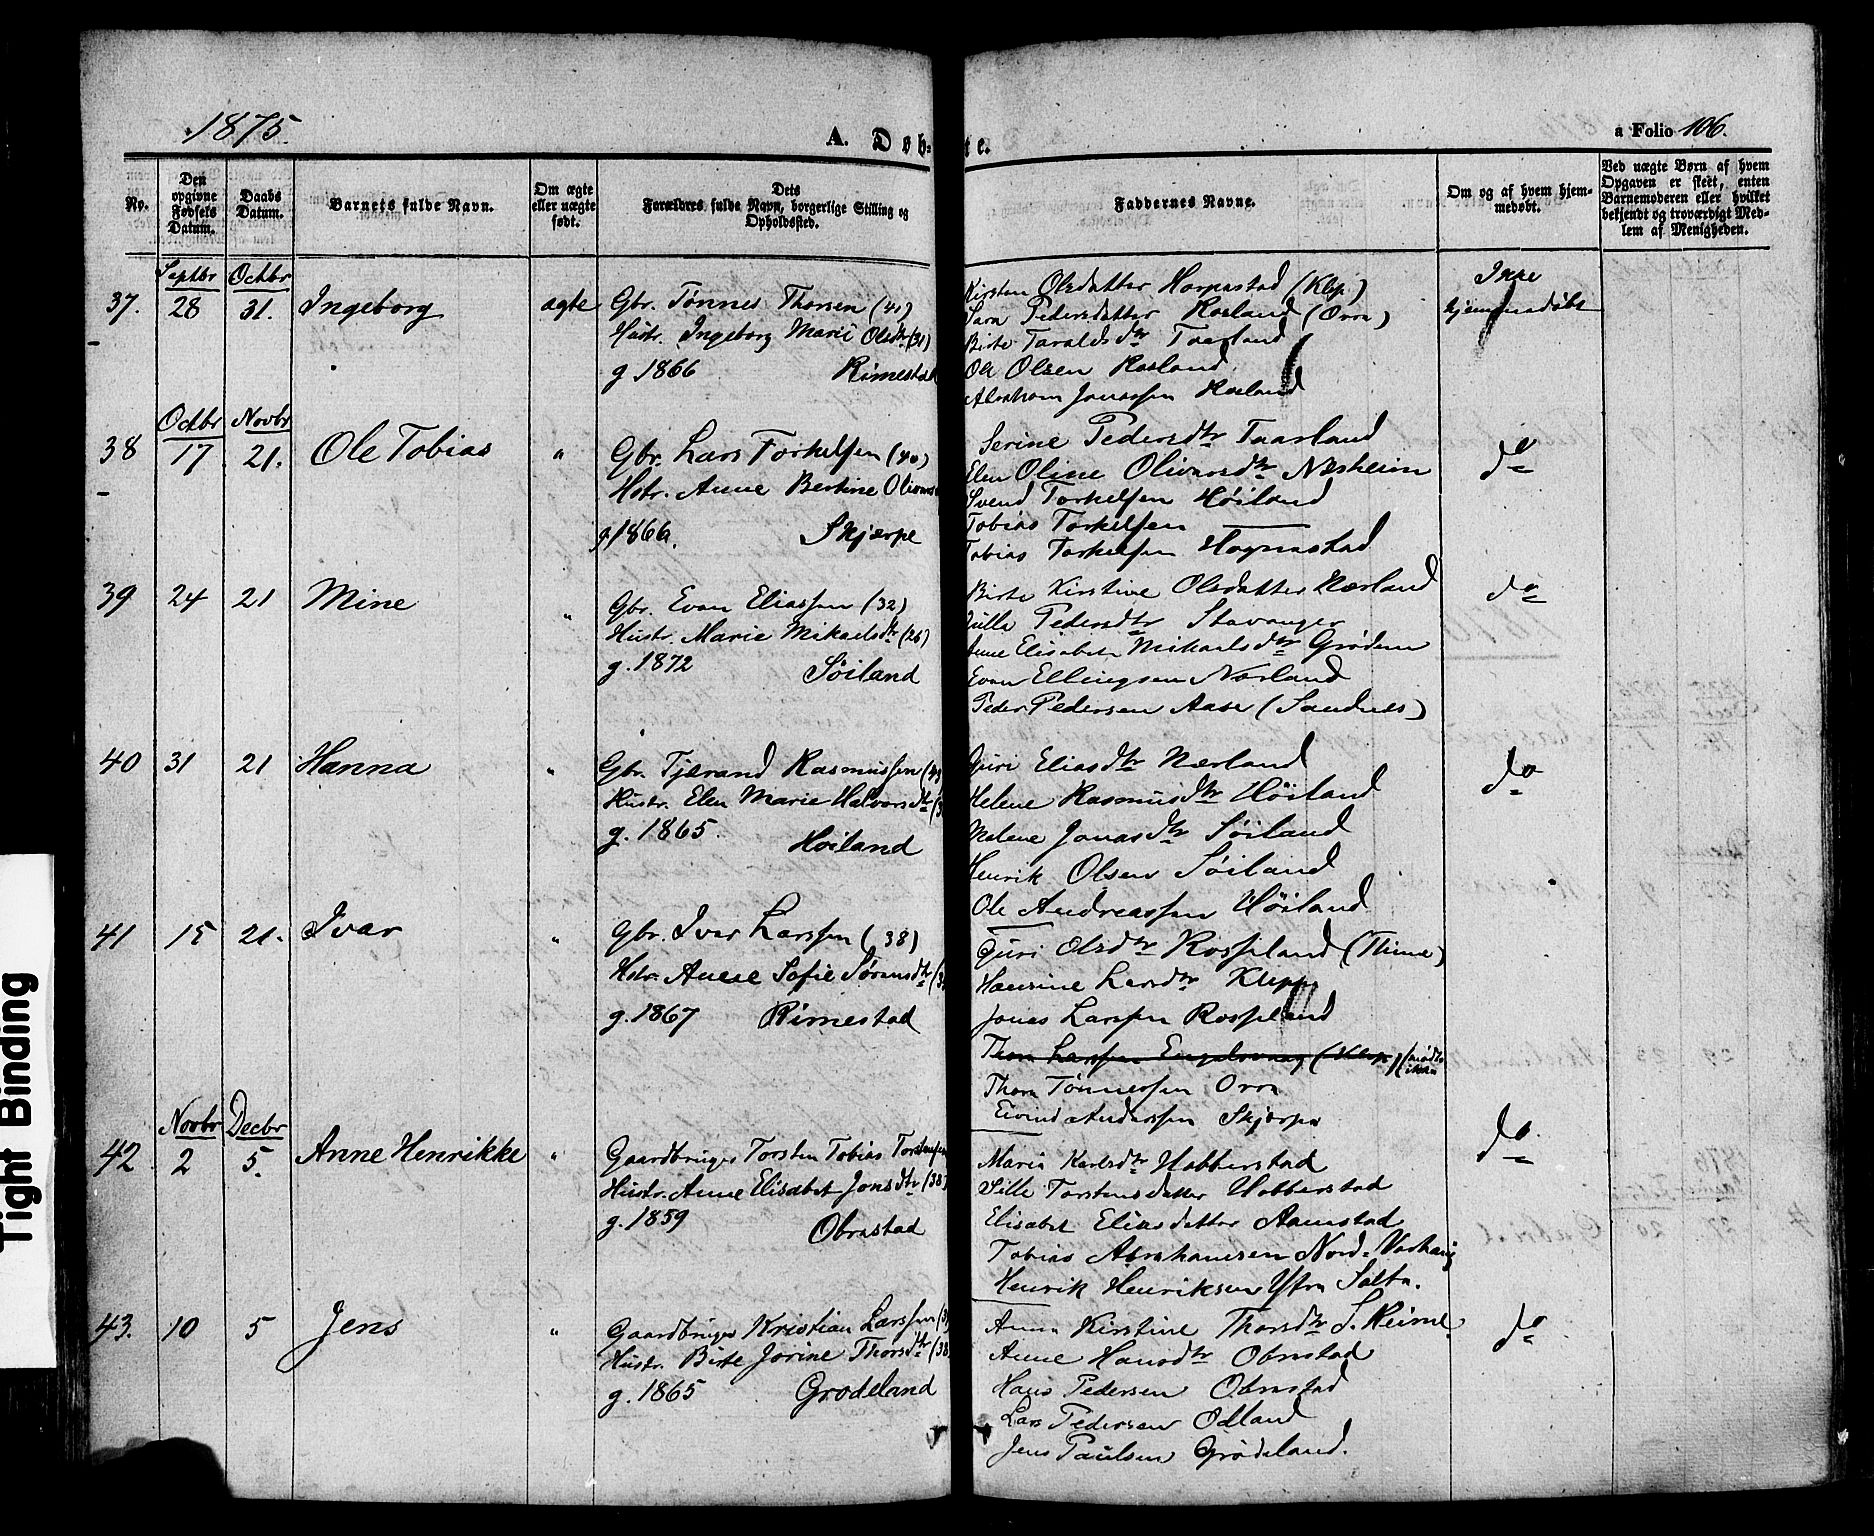 1875.
A. Døb-
te.
a Folio 106.
No.
Den opgivne Fødsels Datum.
Daabs Datum.
Barnets fulde Navn.
Om ægte eller uægte født.
Dets Forældres fulde Navn, borgerlige Stilling og Opholdssted.
Faddernes Navne.
Om og af hvem hjemmedøbt.
Ved uægte Børn af hvem Opgaven er skeet, enten Barnemoderen eller hvilket bekjendt og troværdigt Medlem af Menigheden.
Septbr Octbr
37. 28 31. Ingeborg ægte Gbr. Tønnes Thorsen (41)
Hustr. Ingeborg Marie Olsdtr (31)
g 1866 Rimestad
Kirsten Olsdatter Horpestad (Klep)
Sara Pedersdatter Hosland (Orre)
Birte Taraldsdtr Taarland
Ole Olsen Hosland
Abraham Jonassen Hosland
Ikke
hjemmedøbt
Octbr Novbr
38 17 21. Ole Tobias " Gbr. Lars Torkelsen (40)
Hstr. Anne Bertine
g. 1866. Skjærpe
Serine Pedersdtr Taarland
Elen Oline Olivarsdtr Næsheim
Svend Torkelsen Høiland
Tobias Torkelsen
Tobias Torkelsen Hognestad
do
39 24 21 Mine " Gbr. Even Eliassen (32)
Hustr. Marie Mikaelsdtr (26)
g. 1872 Søiland
Birte Kirstine Olsdatter Nærland
Sille Pedersdtr Stavanger
Anne Elisabet Mikaelsdtr Grødem
Even Ellingsen Nærland
Peder Pedersen Aase (Sandnes)
do
40 31 21 Hanna " Gbr. Tjærand Rasmussen
Hustr. Elen Marie Halvorsdtr
g. 1865. Høiland
Guri Eliasdtr Nærland
Helene Rasmusdtr Høiland
Malene Jonasdtr Søiland
Henrik Olsen Søiland
Ole Andreassen Høiland
do
41 15 21. Ivar " Gbr. Iver Larssen (38)
Hstr. Anne Sofie Sørensdtr
g. 1867 Rimestad
Guri Olsdtr Rosseland (Thime)
Hansine Larsdtr Klepp
Jonas Larssen Rosseland
Thore Larssen Engelsvaag (Klep)
Thore Tønnessen Orre
Eivind Anderssen Skjærpe
Novbr Decbr
42. 2 5. Anne Henrikke " Gaardbruger Torsten Tobias Torstensen
Hustr. Anne Elisabet Jonsdtr (38)
g. 1859 Obrestad
Maria Karlsdtr Hobberstad
Sille Torstensdatter Hobberstad
Elisabet Eliasdatter Aanestad
Tobias Abrahamsen Nord-Varhaug
Henrik Henriksen Ytre Salte.
do
43. 10 5 Jens " Gaardbruger Kristian Larssen
Hustr. Birte Jorine Thorsdtr (38
g. 1865 Grødeland
Anna Kirstine Thorsdtr S. Reime
Anne Hansdtr Obrestad
Hans Pedersen Obrestad
Lars Pedersen Odland
Jens Paulsen Grødeland.
do
Tight Binding